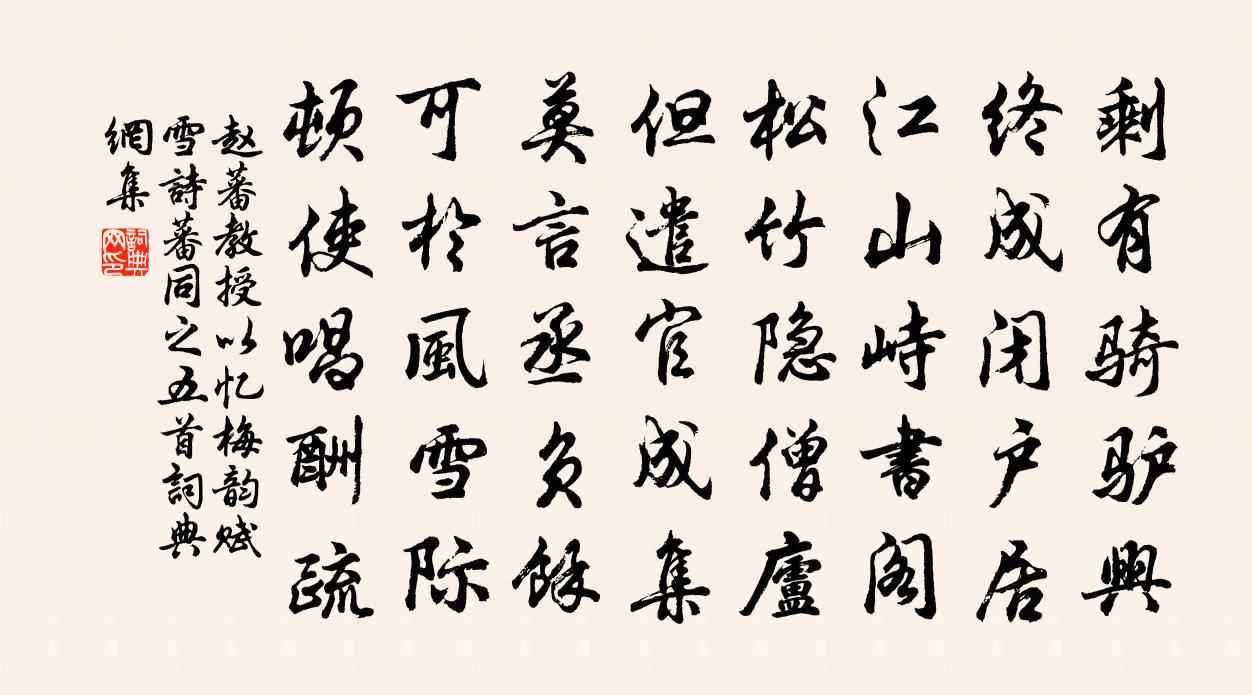 剩有骑驴興
终成闭户居
江山峙書阁
松竹隐僧廬
但遣官成集
莫言丞负餘
可於風雪际
頓使唱酬疏
赵蕃教授以忆梅韵赋
雪詩蕃同之五首詞典
網集
詞典网印